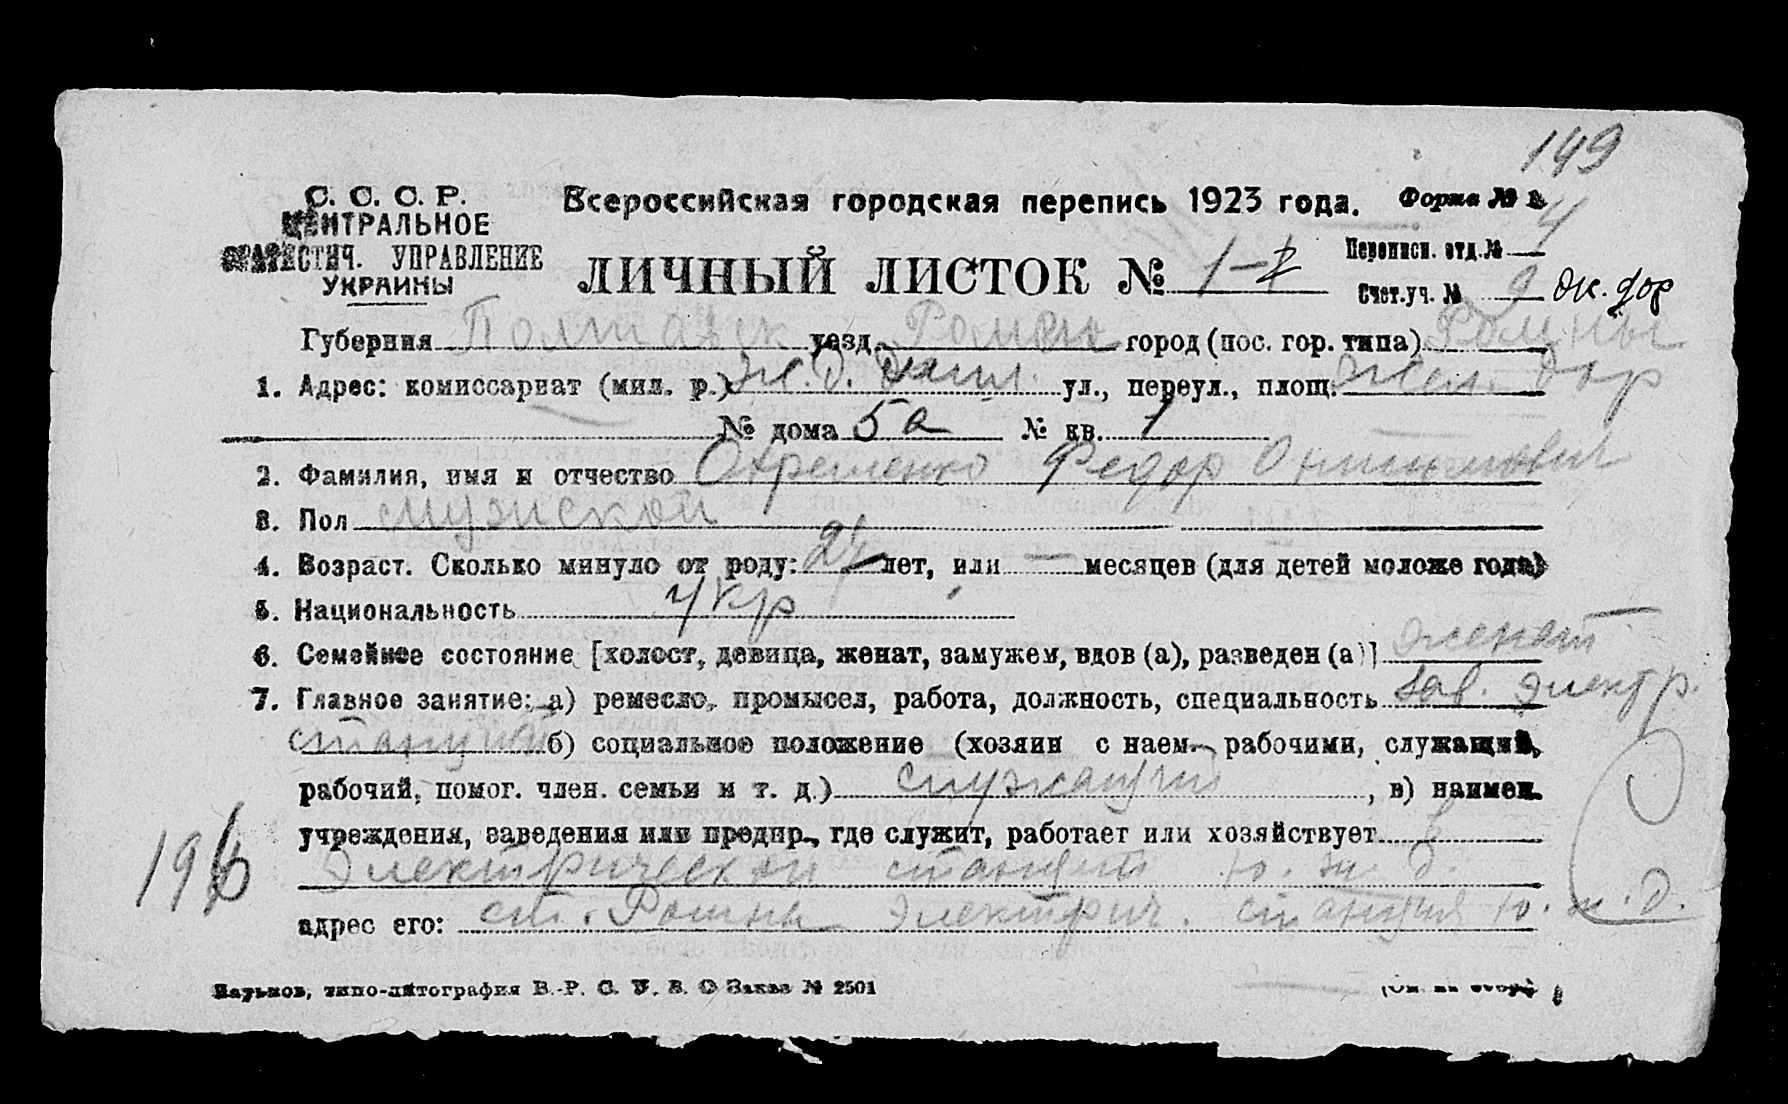 149
С. С. С. Р.
ЦЕНТРАЛЬНОЕ
СТАТИСТИЧ. УПРАВЛЕНИЕ
УКРАИНЫ
Всероссийская городская перепись 1923 года. Форма №
ЛИЧНЫЙ ЛИСТОК № 1-
Переписн. отд. № 4
Счет. уч. № 9 жк. дор
Губерния Полтавск уезд Ромен город (пос. гор. типа) Ромны
1. Адрес: комиссариат (мил. р.) Ж. Д. ул., переул., площ. Жел. дор
№ дома 5а № кв. 1
2. Фамилия, имя и отчество Охременко Федор
3. Пол мужской
4. Возраст. Сколько минуло от роду: лет, или — месяцев (для детей моложе года)
5. Национальность укр
6. Семейное состояние [холост, девица, женат, замужем, вдов (а), разведен (а)] женат
7. Главное занятие: а) ремесло, промысел, работа, должность, специальность зав. электр.
станцией б) социальное положение (хозяин с наем. рабочими, служащий,
рабочий, помог. член. семьи и т. д.) служащий, в) наимен.
учреждения, заведения или предпр., где служит, работает или хозяйствует в
электрической станции ю. ж. д.
196
адрес его: ст. Ромны электрич. станция ю. ж. д.
Харьков, типо-литография В.-Р. С. У. В. О Заказ № 2501
(См. на обор.)